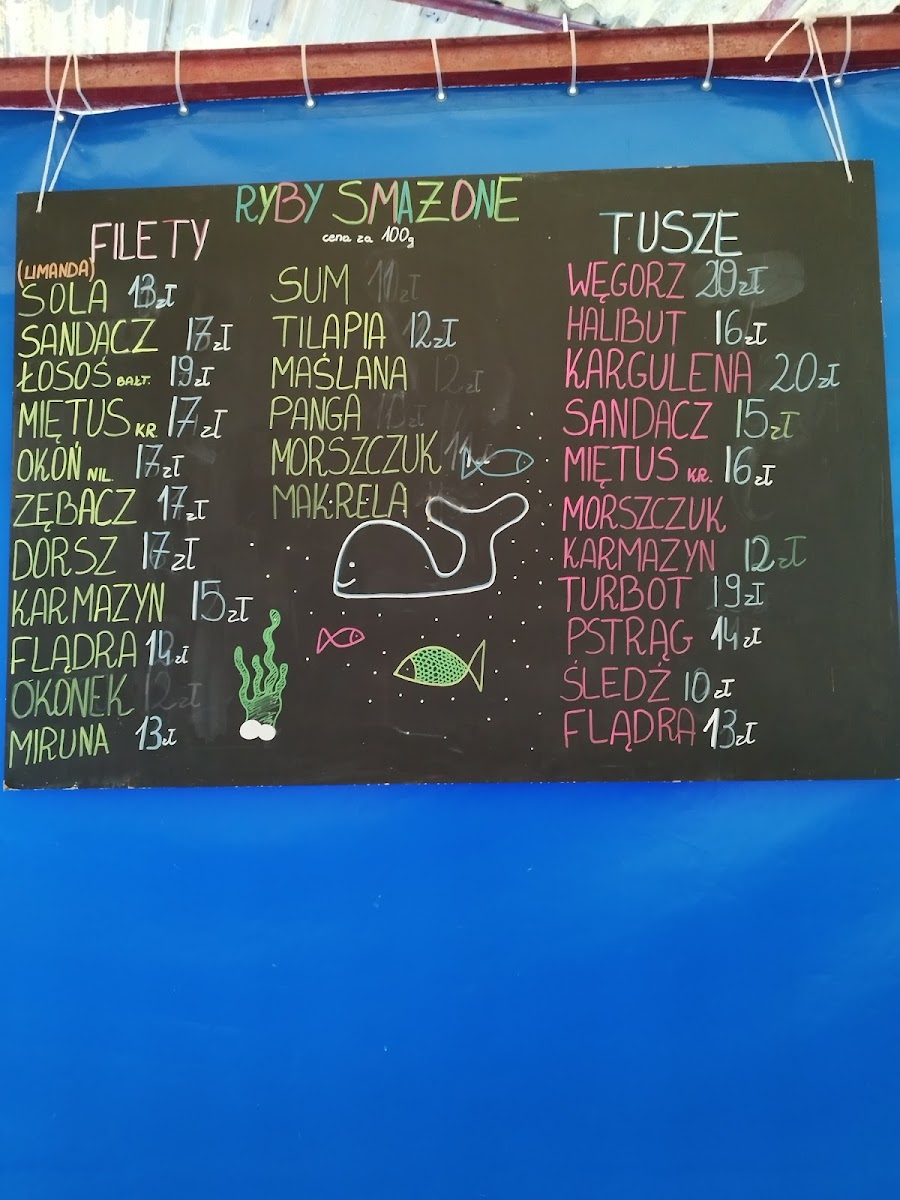 RYBY SMAŻONE
cena za 100g
FILETY
(LIMANDA)
SOLA 13zł
SANDĄCZ 17zł
ŁOSOŚ BAŁT. 19zł
MIĘTUS KR. 17zł
OKOŃ NIL. 17zł
ZĘBACZ 17zł
DORSZ 17zł
KARMAZYN 15zł
FLĄDRA 14zł
OKONEK 12zł
MIRUNA 13zł
SUM 11zł
TILAPIA 12zł
MAŚLANA 12zł
PANGA
MORSZCZUK
MAKRELA
TUSZE
WĘGORZ 20zł
HALIBUT 16zł
KARGULENA 20zł
SANDACZ 15zł
MIĘTUS KR. 16zł
MORSZCZUK
KARMAZYN 12zł
TURBOT 19zł
PSTRĄG 14zł
ŚLEDŹ 10zł
FLĄDRA 13zł